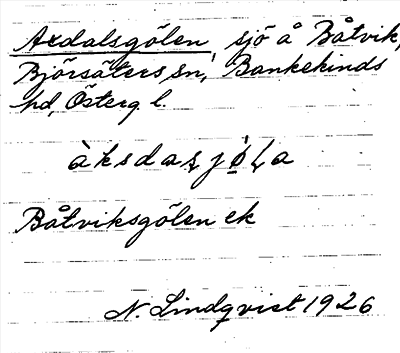 Axdalsgölen, sjö å Båtvik,
Björsäters sn, Bankekinds
hd, Österg. l.
àksdaʂjø̀ɭa
Båtviksgölen ek
N. Lindqvist 1926